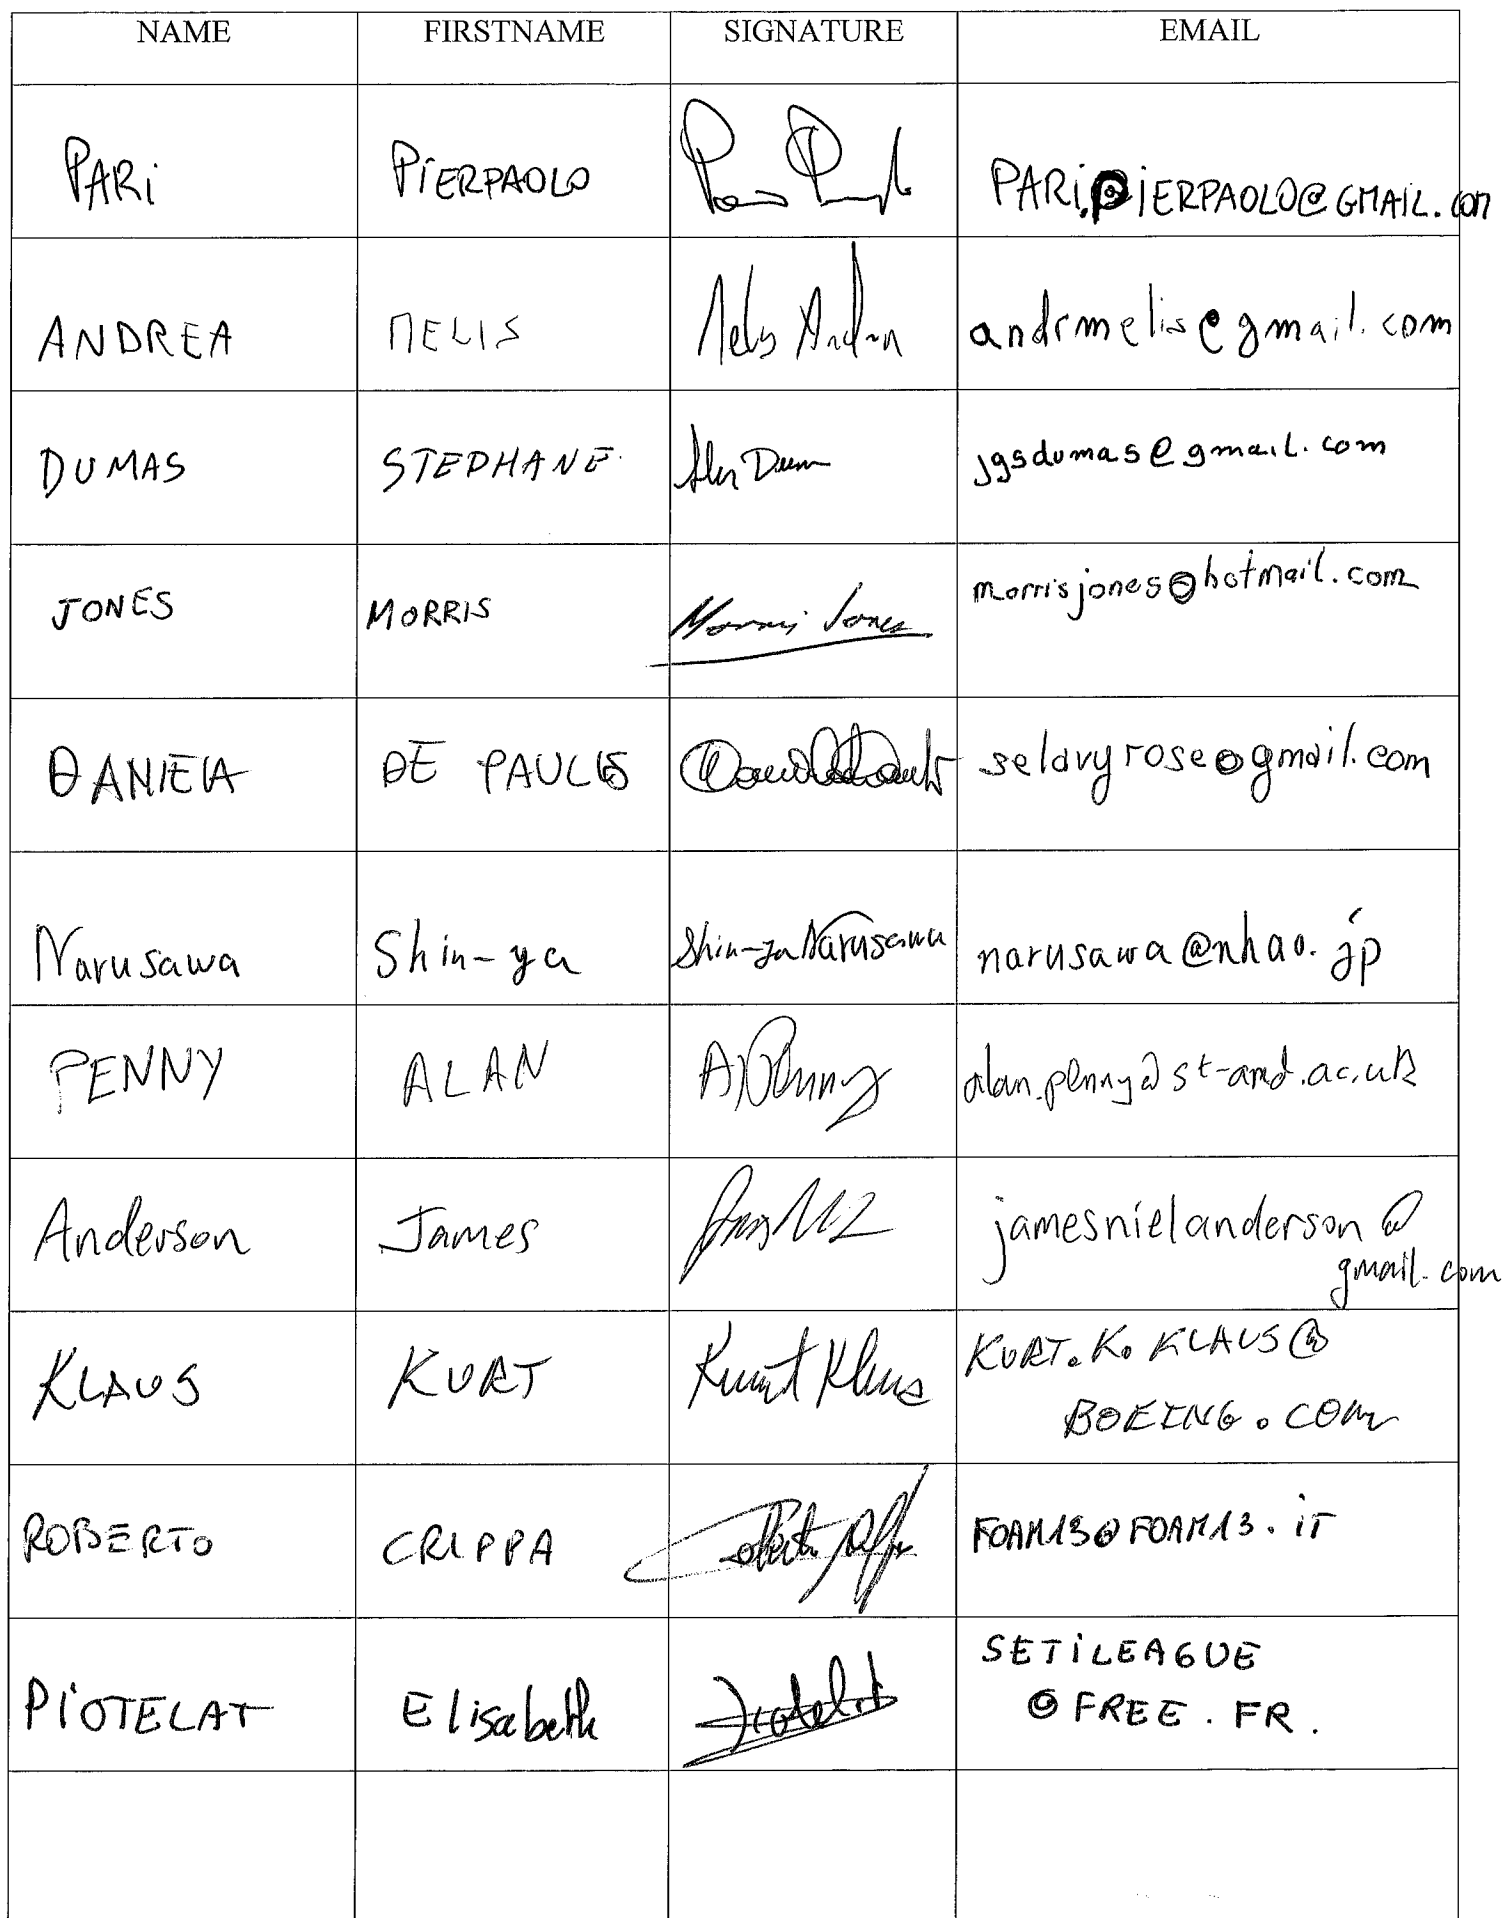 NAME FIRSTNAME SIGNATURE EMAIL
PARI PIERPAOLO PARI.PIERPAOLO@GMAIL.COM
ANDREA MELIS Melis Andrea andrmelis@gmail.com
DUMAS STEPHANE jgsdumas@gmail.com
JONES MORRIS Morris Jones morrisjones@hotmail.com
DANIELA DE PAULIS selavyrose@gmail.com
Narusawa Shin-ya Shin-ya Narusawa narusawa@nhao.jp
PENNY ALAN A J Penny alan.penny@st-and.ac.uk
Anderson James jamesnielanderson@
gmail.com
KLAUS KURT Kurt Klaus KURT.K.KLAUS@
BOEING.COM
ROBERTO CRIPPA FOAM13@FOAM13.IT
PIOTELAT Elisabeth Piotelat SETILEAGUE
@FREE.FR.